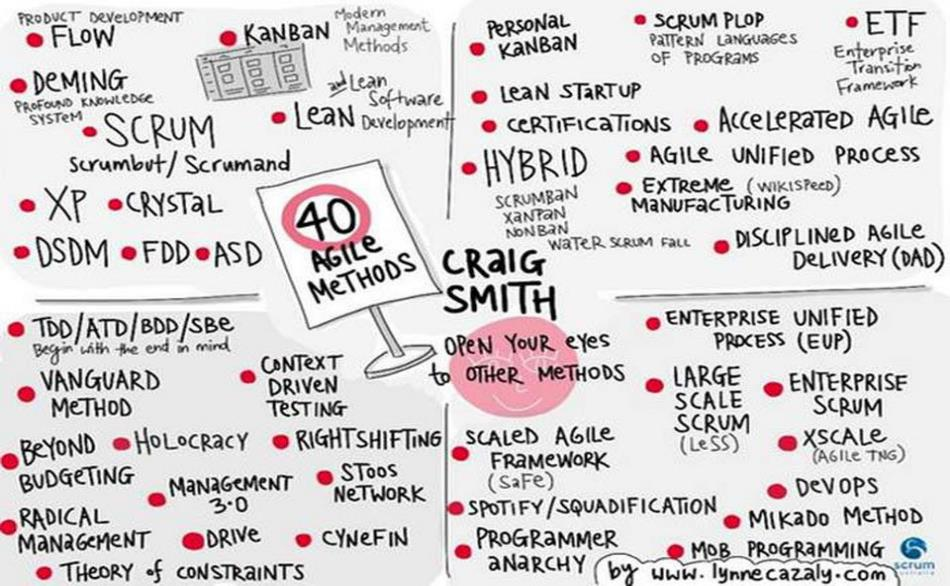 PRODUCT DEVELOPMENT
FLOW
KANBAN
Modern
Management
Methods
DEMING
PROFOUND KNOWLEDGE
SYSTEM
and Lean
Software
LEAN Development
SCRUM
Scrumbut/Scrumand
XP
CRYSTAL
DSDM
FDD
ASD
40
AGILE
METHODS
PERSONAL
KANBAN
SCRUM PLOP
PATTERN LANGUAGES
OF PROGRAMS
ETF
Enterprise
Transition
Framework
LEAN STARTUP
CERTIFICATIONS
ACCELERATED AGILE
HYBRID
SCRUMBAN
XANPAN
NONBAN
WATER SCRUM FALL
AGILE UNIFIED PROCESS
EXTREME (WIKISPEED)
MANUFACTURING
DISCIPLINED AGILE
DELIVERY (DAD)
CRAIG
SMITH
OPEN YOUR EYES
to OTHER METHODS
TDD/ATD/BDD/SBE
Begin with the end in mind
VANGUARD
METHOD
CONTEXT
DRIVEN
TESTING
BEYOND
BUDGETING
HOLOCRACY
RIGHTSHIFTING
MANAGEMENT
3.0
STOOS
NETWORK
RADICAL
MANAGEMENT
DRIVE
CYNEFIN
THEORY of CONSTRAINTS
ENTERPRISE UNIFIED
PROCESS (EUP)
LARGE
SCALE
SCRUM
(LeSS)
ENTERPRISE
SCRUM
XSCALE
(AGILE TNG)
SCALED AGILE
FRAMEWORK
(SaFe)
DEVOPS
SPOTIFY/SQUADIFICATION
MIKADO METHOD
PROGRAMMER
ANARCHY
MOB PROGRAMMING
by www.lynnecazaly.com
scrum